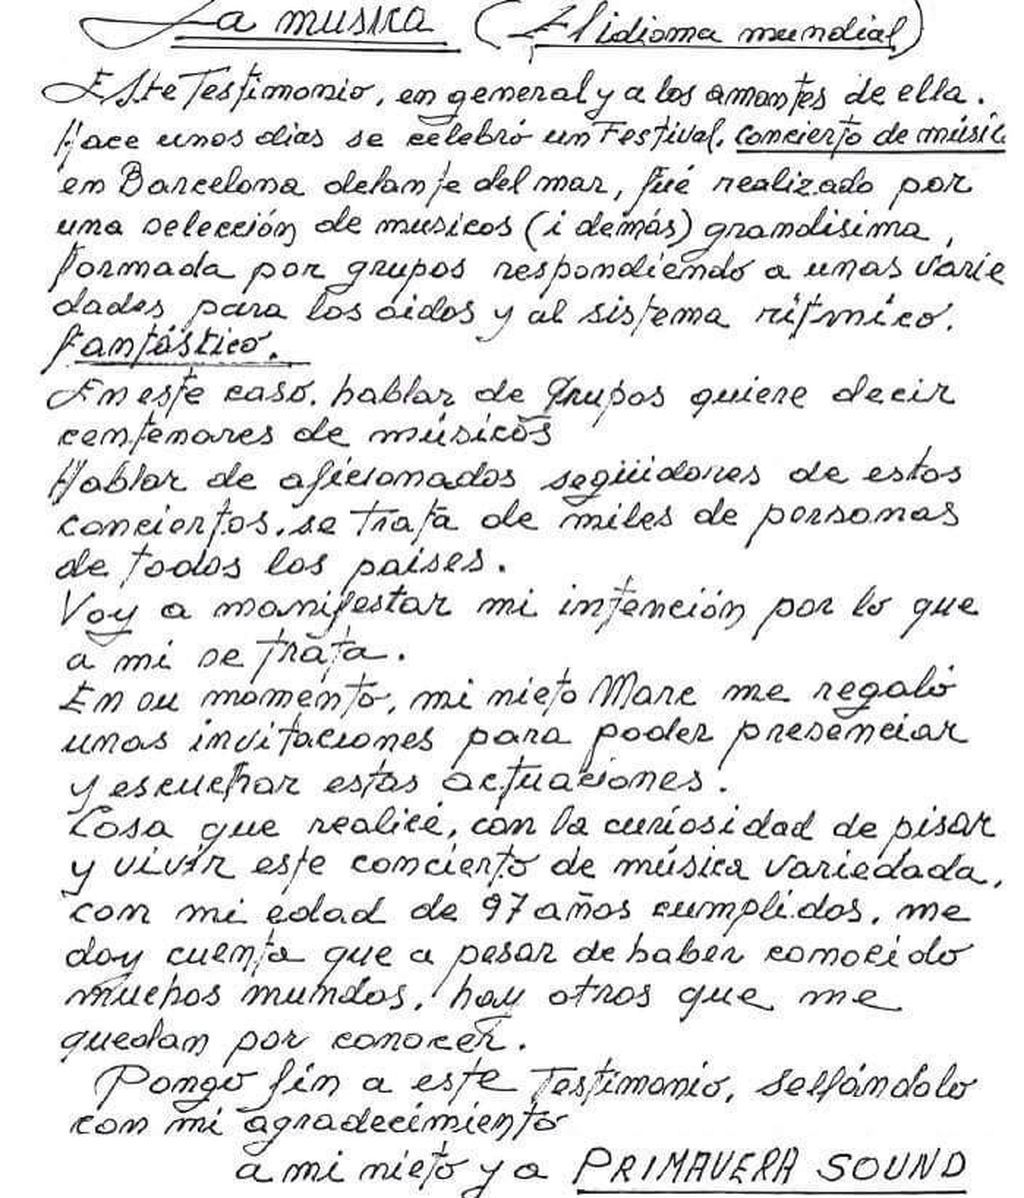 La musica (El idioma mundial)
Este Testimonio, en general y a los amantes de ella.
Hace unos dias se celebró un Festival, concierto de músic
en Barcelona delante del mar, fué realizado por
una selección de musicos (i demás) grandisima,
formada por grupos respondiendo a unas varie
dades para los oidos y al sistema ritmico.
fantástico.
En este caso, hablar de Grupos quiere decir
centenares de músicos
Hablar de aficionados següidores de estos
conciertos, se trata de miles de personas
de todos los paises.
Voy a manifestar mi intención por lo que
a mi se trata.
En su momento, mi nieto Marc me regaló
unas invitaciones para poder presenciar
y escuchar estas actuaciones.
Cosa que realicé, con la curiosidad de pisar
y vivir este concierto de música variedada,
con mi edad de 97 años cumplidos, me
doy cuenta que a pesar de haber conocido
muchos mundos, hay otros que me
quedan por conocer.
Pongo fin a este Testimonio, sellándolo
con mi agradecimiento
a mi nieto y a PRIMAVERA SOUND